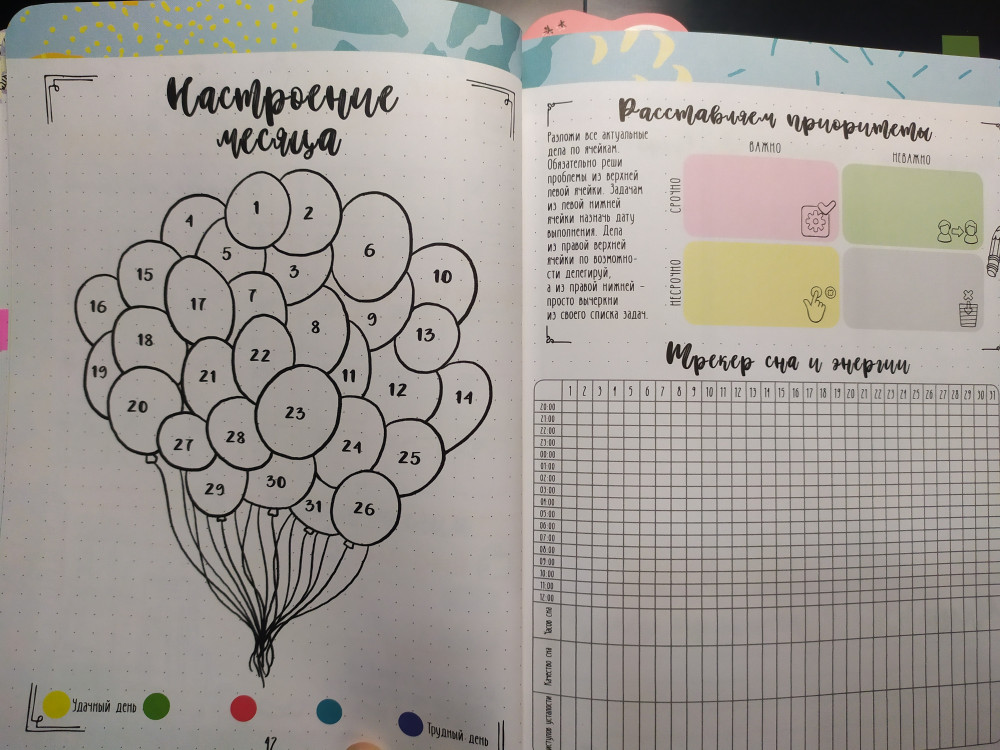 Настроение
месяца
1
2
4
5
3
6
15
10
16
17
7
8
9
13
18
22
19
21
11
12
14
20
23
27
28
24
25
29
30
31
26
Удачный день
Трудный день
47
Расставляем приоритеты
Разложи все актуальные
дела по ячейкам.
Обязательно реши
проблемы из верхней
левой ячейки. Задачам
из левой нижней
ячейки назначь дату
выполнения. Дела
из правой верхней
ячейки по возможно-
сти делегируй,
а из правой нижней –
просто вычеркни
из своего списка задач.
ВАЖНО
НЕВАЖНО
СРОЧНО
НЕСРОЧНО
Трекер сна и энергии
1 2 3 4 5 6 7 8 9 10 11 12 13 14 15 16 17 18 19 20 21 22 23 24 25 26 27 28 29 30 31
20:00
21:00
22:00
23:00
00:00
01:00
02:00
03:00
04:00
05:00
06:00
07:00
08:00
09:00
10:00
11:00
12:00
Часов сна
Качество сна
усталости